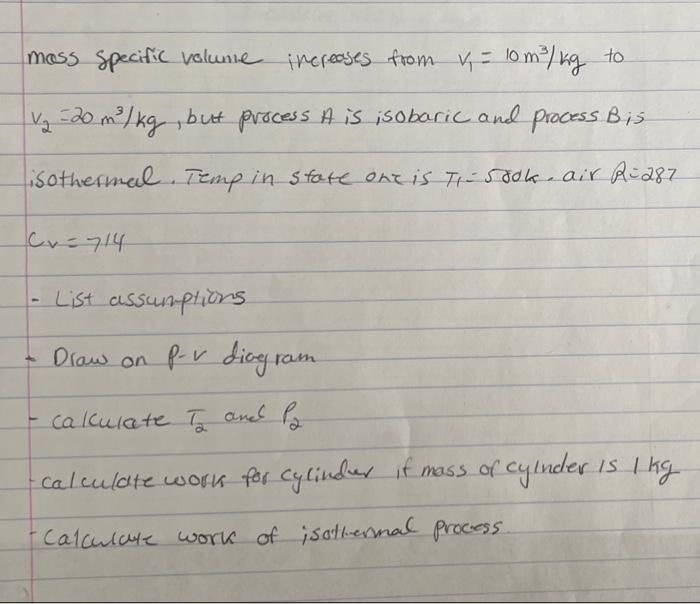 mass specific volume increases from v₁ = 10 m³/kg to
v₂ = 20 m³/kg, but process A is isobaric and process B is
isothermal. Temp in state one is T₁ = 500k. air R=287
Cv = 714
- List assumptions
- Draw on P-v diagram
- calculate T₂ and P₂
- calculate work for cylinder if mass of cylinder is 1 kg
- Calculate work of isothermal process.